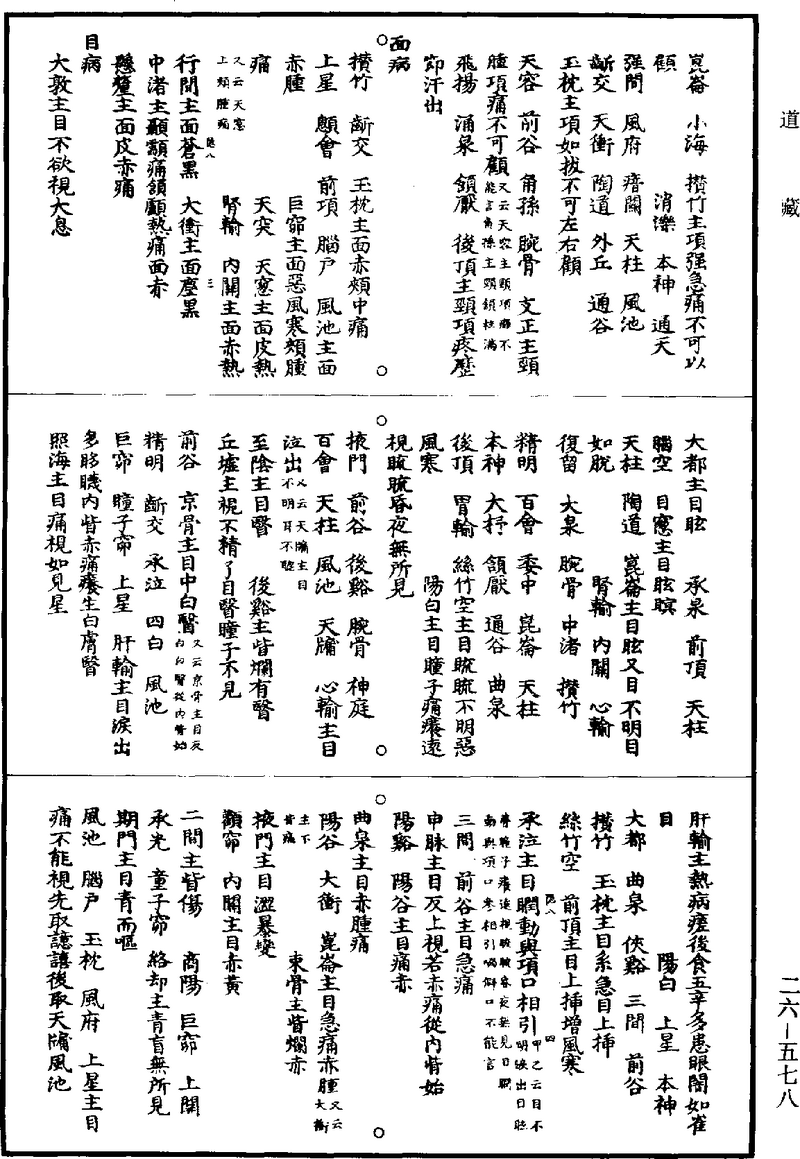 道藏
崑崙　小海　攢竹主項强急痛不可以
顧　消濼　本神　通天
强間　風府　瘖門　天柱　風池
齗交　天衝　陶道　外丘　通谷
玉枕主項如拔不可左右顧
天容　前谷　角孫　腕骨　支正主頸
腫項痛不可顧又云天容主頸項癰不能言角孫主頸頷柱滿
飛揚　涌泉　頷厭　後頂主頸項疼歷
節汗出
面病
攢竹　齗交　玉枕主面赤頰中痛
上星　顖會　前項　腦户　風池主面
赤腫　巨窌主面惡風寒頰腫
痛　天突　天窓主面皮熱
又云天窓上頰腫痛　腎輸　内關主面赤熱
行間主面蒼黑　大衝主面塵黑
中渚主顳顬痛頷顱熱痛面赤
懸釐主面皮赤痛
目病
大敦主目不欲視大息
大都主目眩　承泉　前頂　天柱
腦空　目窓主目眩瞑
天柱　陶道　崑崙主目眩又目不明目
如脱　腎輸　内關　心輸
復留　大泉　腕骨　中渚　攢竹
精明　百會　委中　崑崙　天柱
本神　大抒　頷厭　通谷　曲泉
後頂　胃輸　絲竹空主目䀮䀮不明惡
風寒　陽白主目瞳子痛癢遠
視䀮䀮昏夜無所見
掖門　前谷　後谿　腕骨　神庭
百會　天柱　風池　天牖　心輸主目
泣出又云天牖主目不明耳不聦
至陰主目翳　後谿主眥爛有翳
丘墟主視不精了目翳瞳子不見
前谷　京骨主目中白翳又云京骨主目反白白翳從内眥始
精明　齗交　承泣　四白　風池
巨窌　瞳子窌　上星　肝輸主目淚出
多眵䁾内眥赤痛癢生白膚翳
照海主目痛視如見星
肝輸主熱病瘥後食五辛多患眼闇如雀
目　陽白　上星　本神
大都　曲泉　俠谿　三間　前谷
攢竹　玉枕主目系急目上插
絲竹空　前頂主目上插增風寒
承泣主目瞤動與項口相引
三間　前谷主目急痛
申脉主目反上視若赤痛從内眥始
陽谿　陽谷主目痛赤
曲泉主目赤腫痛
陽谷　大衝　崑崙主目急痛赤腫又云大衝主下眥痛　束骨主眥爛赤
掖門主目澀暴變
顴窌　内關主目赤黄
二間主眥傷　商陽　巨窌　上關
承光　童子窌　絡却主青盲無所見
期門主目青而嘔
風池　腦户　玉枕　風府　上星主目
痛不能視先取譩譆後取天牖風池
二六—五七八